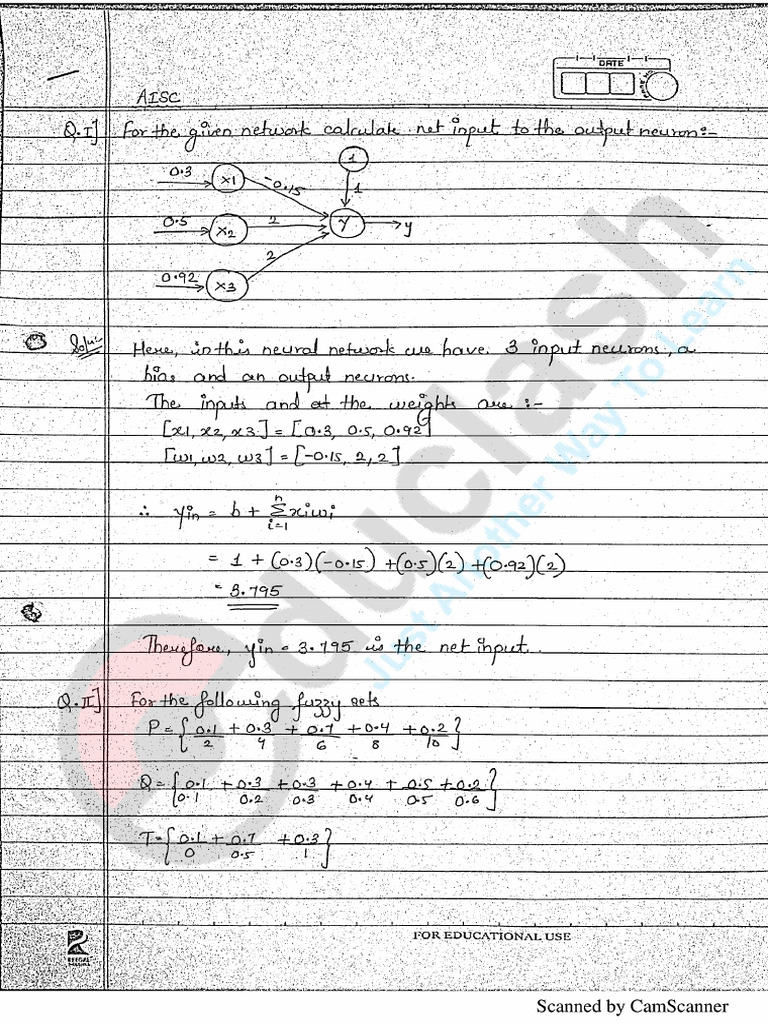 DATE
AISC
Q.I] For the given network calculate net input to the output neuron:-
1
0.3 x1 -0.15 1
0.5 x2 2 Y y
2
0.92 x3
Soln: Here, in this neural network we have 3 input neurons, a
bias and an output neurons.
The inputs and the weights are :-
[x1, x2, x3] = [0.3, 0.5, 0.92]
[w1, w2, w3] = [-0.15, 2, 2]
∴ yin = b + n∑i=1 xiwi
= 1 + (0.3)(-0.15) + (0.5)(2) + (0.92)(2)
= 3.795
Therefore, yin = 3.795 is the net input.
Q.II] For the following fuzzy sets
P = {0.1/2 + 0.3/4 + 0.7/6 + 0.4/8 + 0.2/10}
Q = {0.1/0.1 + 0.3/0.2 + 0.3/0.3 + 0.4/0.4 + 0.5/0.5 + 0.2/0.6}
T = {0.1/0 + 0.7/0.5 + 0.3/1}
educlash
Just Another Way To Learn
FOR EDUCATIONAL USE
Scanned by CamScanner